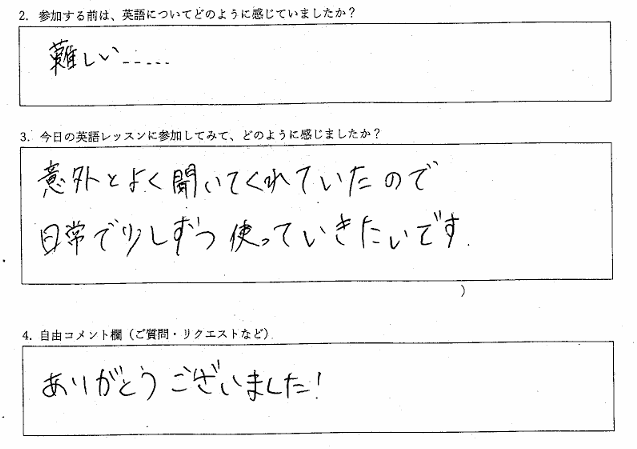 2. 参加する前は、英語についてどのように感じていましたか？
難しい.....
3. 今日の英語レッスンに参加してみて、どのように感じましたか？
意外とよく聞いてくれていたので
日常で少しずつ使っていきたいです.
）
4. 自由コメント欄（ご質問・リクエストなど）
ありがとうございました！